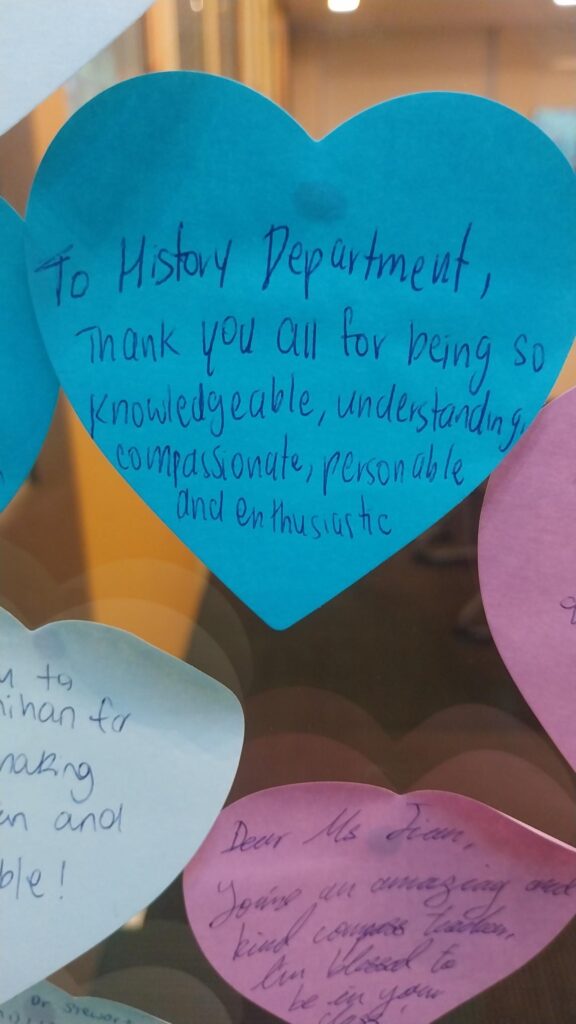 To History Department,
Thank you all for being so
knowledgeable, understanding,
compassionate, personable
and enthusiastic
to
for
making
and
!
Dear Ms
You're an amazing and
kind compass teacher.
I'm blessed to
be in your
class
or Stewart